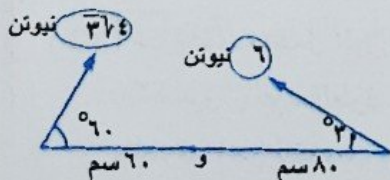 ٤√٣ نيوتن
٦ نيوتن
٦٠°
٣٠°
٦٠ سم و ٨٠ سم